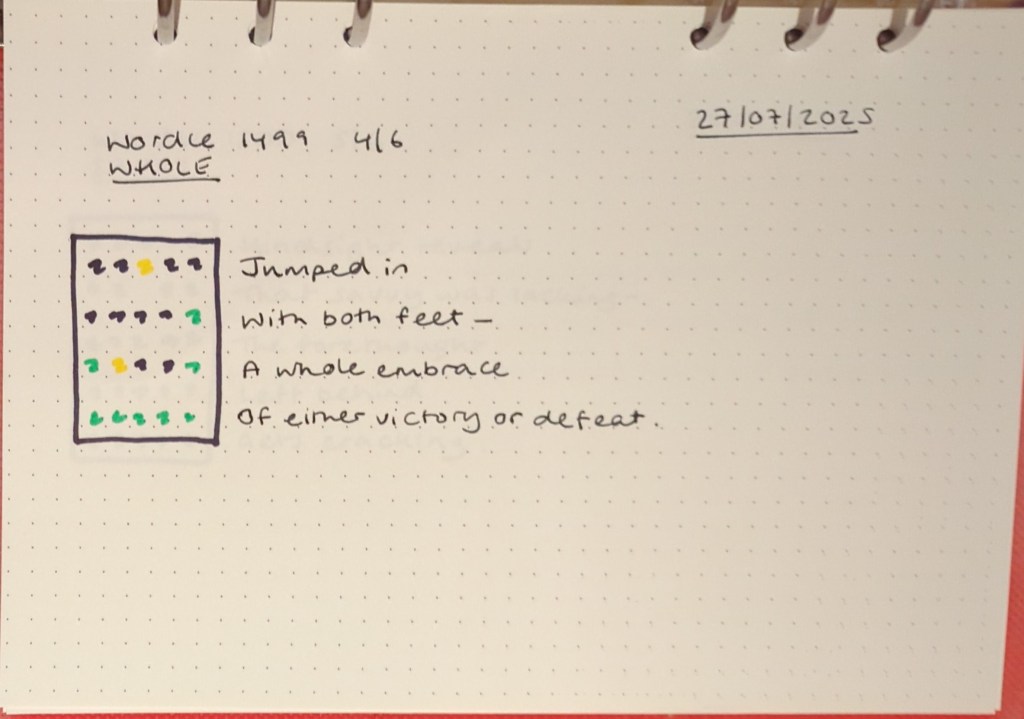 Wordle 1499 4/6
27/07/2025
WHOLE
Jumped in
With both feet –
A whole embrace
Of either victory or defeat.